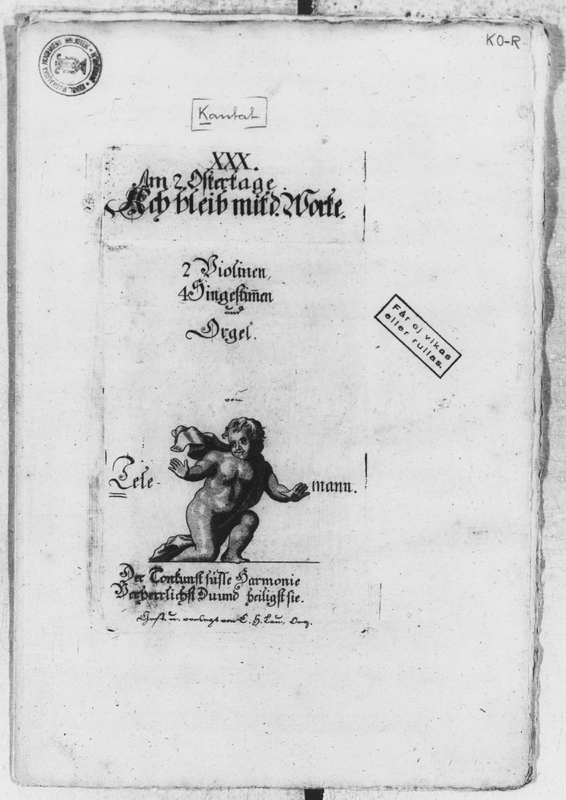 KO-R
Kantat
XXX.
Am 2 Ostertage
Ach bleib mit d. Worte.
2 Violinen,
4 Singestim̄en
und
Orgel.
von
Tele-
mann.
Der Tonkunst süsse Harmonie
Verherrlichst Du und heiligst sie.
Får ej vikas
eller rullas.